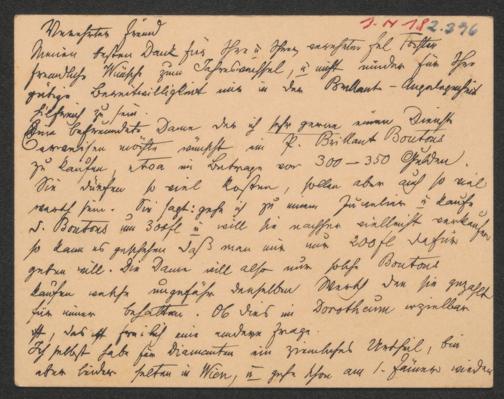 I. N 182.396
Verehrter Freund
Meinen besten Dank für Ihre u Ihrer verehrten Frl Tochter
freundliche Wünsche zum Jahreswechsel, u nicht minder für Ihre
gütige Bereitwilligkeit mir in der Brillant-Angelegenheit
hilfreich zu sein.
Eine befreundete Dame der ich sehr gerne einen Dienst
erweisen möchte wünscht ein P. Brillant Boutons
zu kaufen etwa im Betrage von 300–350 Gulden.
Sie dürfen so viel kosten, sollen aber auch so viel
werth sein. Sie sagt: gehe ich zu einem Juwelier u kaufe
d. Boutons um 300 fl u will sie nachher vielleicht verkaufen
so kann es geschehen daß man mir nur 200 fl dafür
geben will. Die Dame will also nur solche Boutons
kaufen welche ungefähr denselben Werth den sie gezahlt
für immer behalten. Ob dies im Dorotheum erzielbar
ist, das ist freilich eine andere Frage.
Ich selbst habe für Diamanten ein ziemliches Urtheil, bin
aber leider selten in Wien, u gehe schon am 1. Jänner wieder